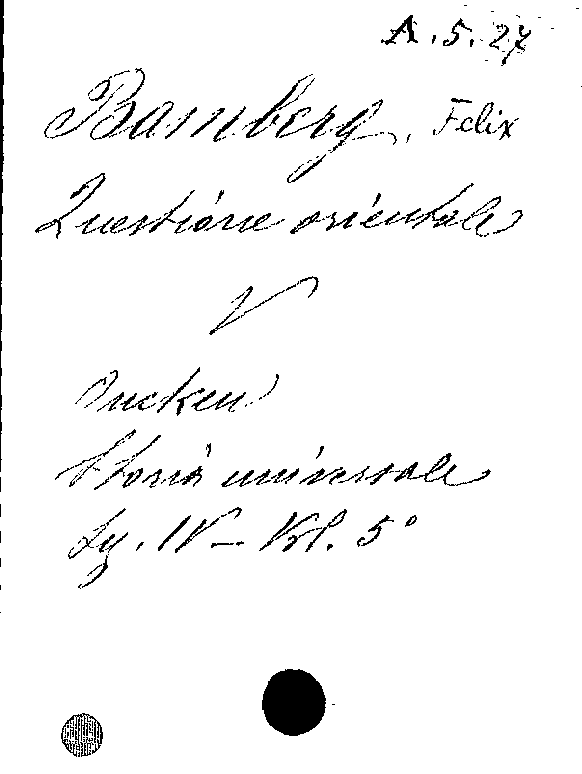 A. 5. 27
Bamberg, Felix
Questione orientale
V
Oncken
Storia universale
Sez. IV - Vol. 5°